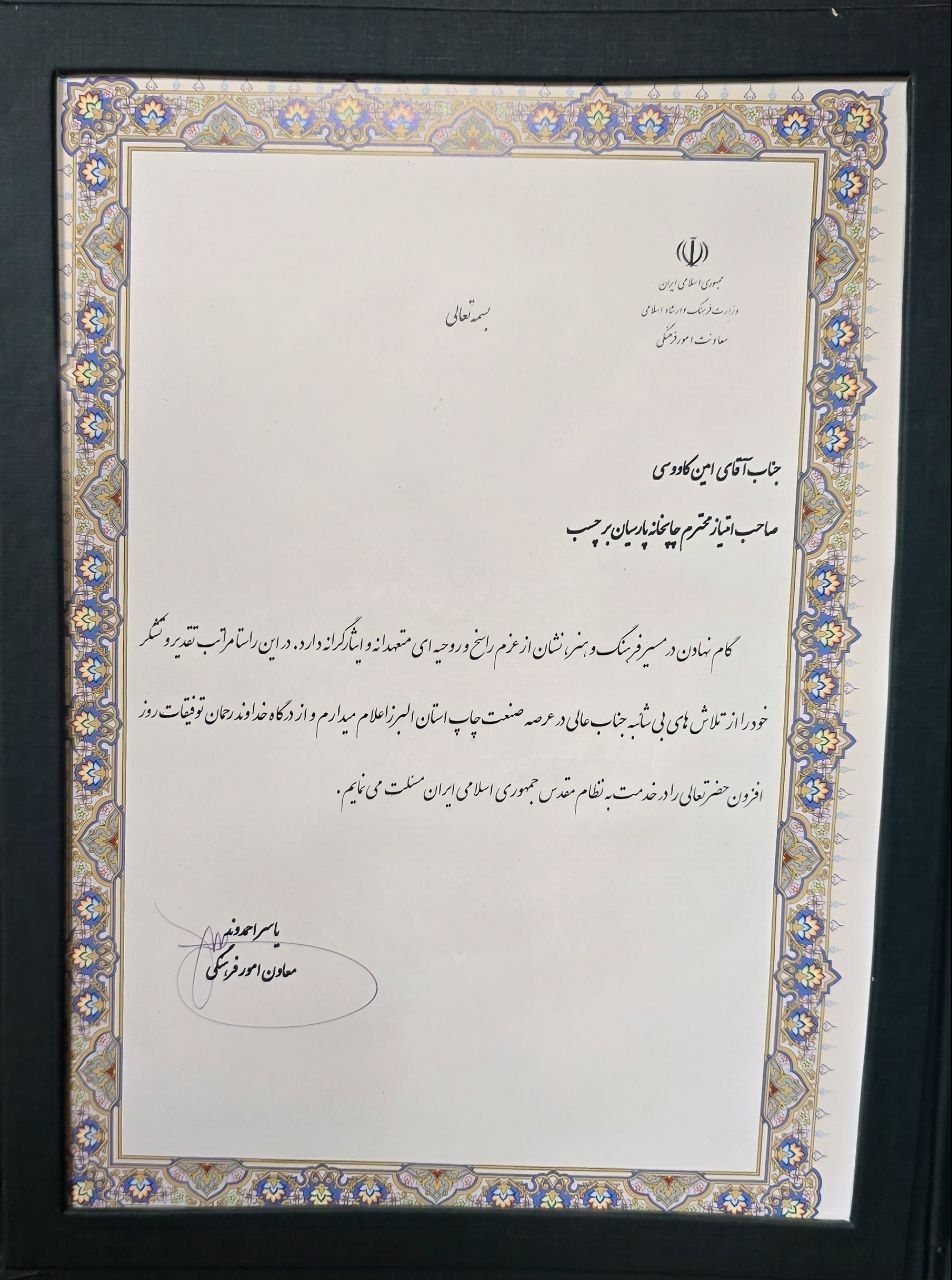 جمهوری اسلامی ایران
وزارت فرهنگ و ارشاد اسلامی
معاونت امور فرهنگی
بسمه تعالی
جناب آقای امین کاووسی
صاحب امتیاز محترم چاپخانه پارسیان برچسب
گام نهادن در مسیر فرهنگ و هنر، نشان از عزم راسخ و روحیه ای متعهدانه و ایثارگرانه دارد. در این راستا مراتب تقدیر و تشکر
خود را از تلاش های بی شائبه جناب عالی در عرصه صنعت چاپ استان البرز اعلام میدارم و از درگاه خداوند رحمان توفیقات روز
افزون حضرتعالی را در خدمت به نظام مقدس جمهوری اسلامی ایران مسئلت می نمایم.
یاسر احمدوند
معاون امور فرهنگی